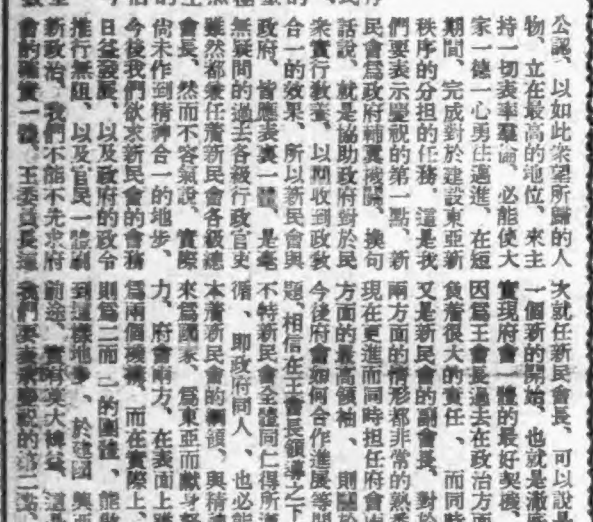 公認、以如此衆望所歸的人
物、立在最高的地位、來主
持一切表率羣倫、必能使大
家一德一心勇往邁進、在短
期間、完成對於建設東亞新
秩序的分担的任務、這是我
們要表示慶祝的第一點、新
民會爲政府輔翼機關、換句
話說、就是協助政府對於民
衆實行教養、以期收到政教
合一的效果、所以新民會與
政府、皆應表裏一體、是毫
無疑問的過去各級行政官吏
雖然都兼任着新民會各級總
會長、然而不容氣說、實際
尚未作到精神合一的地步、
今後我們欲求新民會的會務
日益發展、以及政府的政令
推行無阻、以及官民一體剷
新政治、我們不能不先求府
會的確實一體、王委員長這
次就任新民會長、可以說是
一個新的開始、也就是澈
實現府會一體的最好契機、
因爲王會長過去在政治方面
負着很大的責任、而同時
又是新民會的副會長、對於
兩方面的情形都非常的熟悉
現在更進而同時担任府會
方面的最高領袖、則關於
今後府會如何合作進展等問
題、相信在王會長領導之下
不特新民會全體同仁得所遵
循、即政府同人、也必能
本着新民會的綱領、與精
來爲國家、爲東亞而獻身努
力、府會兩方、在表面上雖
爲兩個機構、而在實際上、
則爲二而一的團體、能做
到這樣地步、於建國興亞
前途、實有莫大裨益、這是
我們要表示慶祝的第二點、